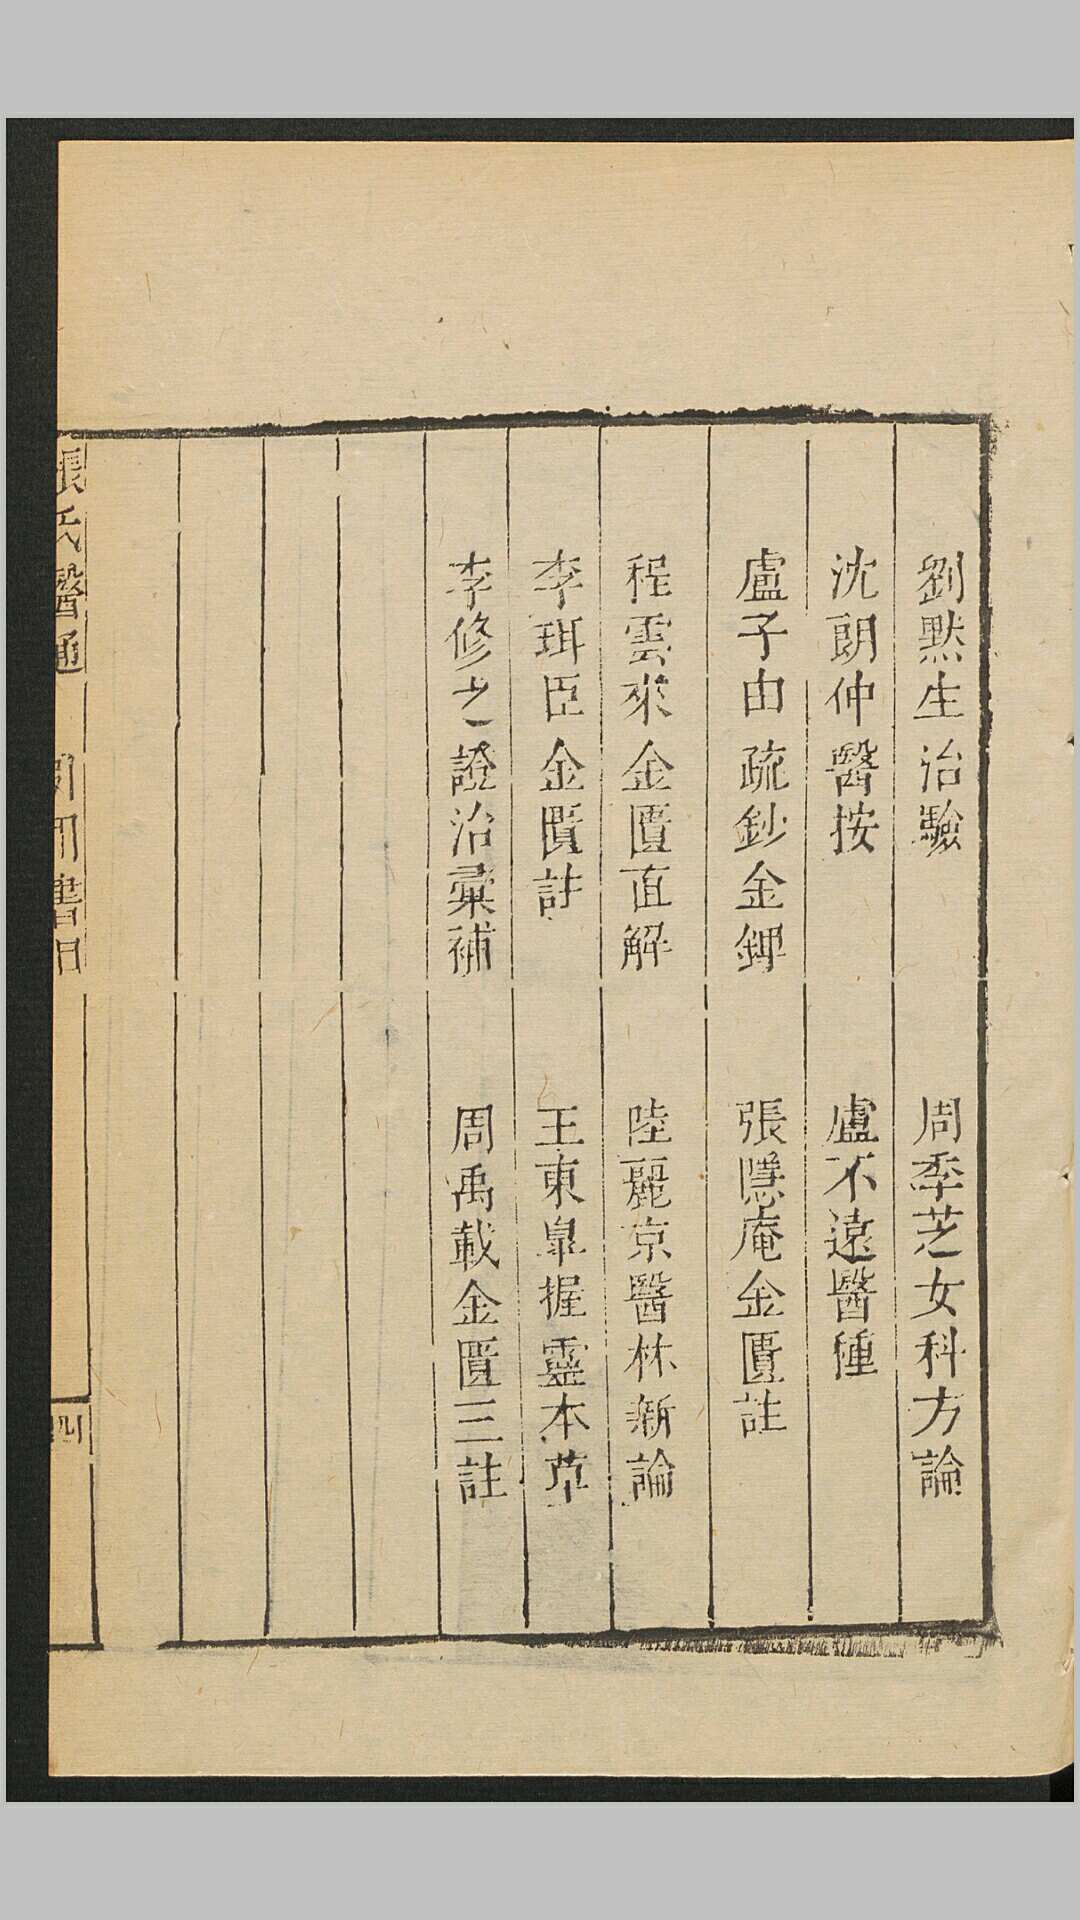 劉默生治驗　周季芝女科方論
沈朗仲醫按　盧不遠醫種
盧子由疏鈔金鎞　張隱庵金匱註
程雲來金匱直解　陸麗京醫林新論
李珥臣金匱註　王東皐握靈本草
李修之證治彙補　周禹載金匱三註
張氏醫通　引用書目　四